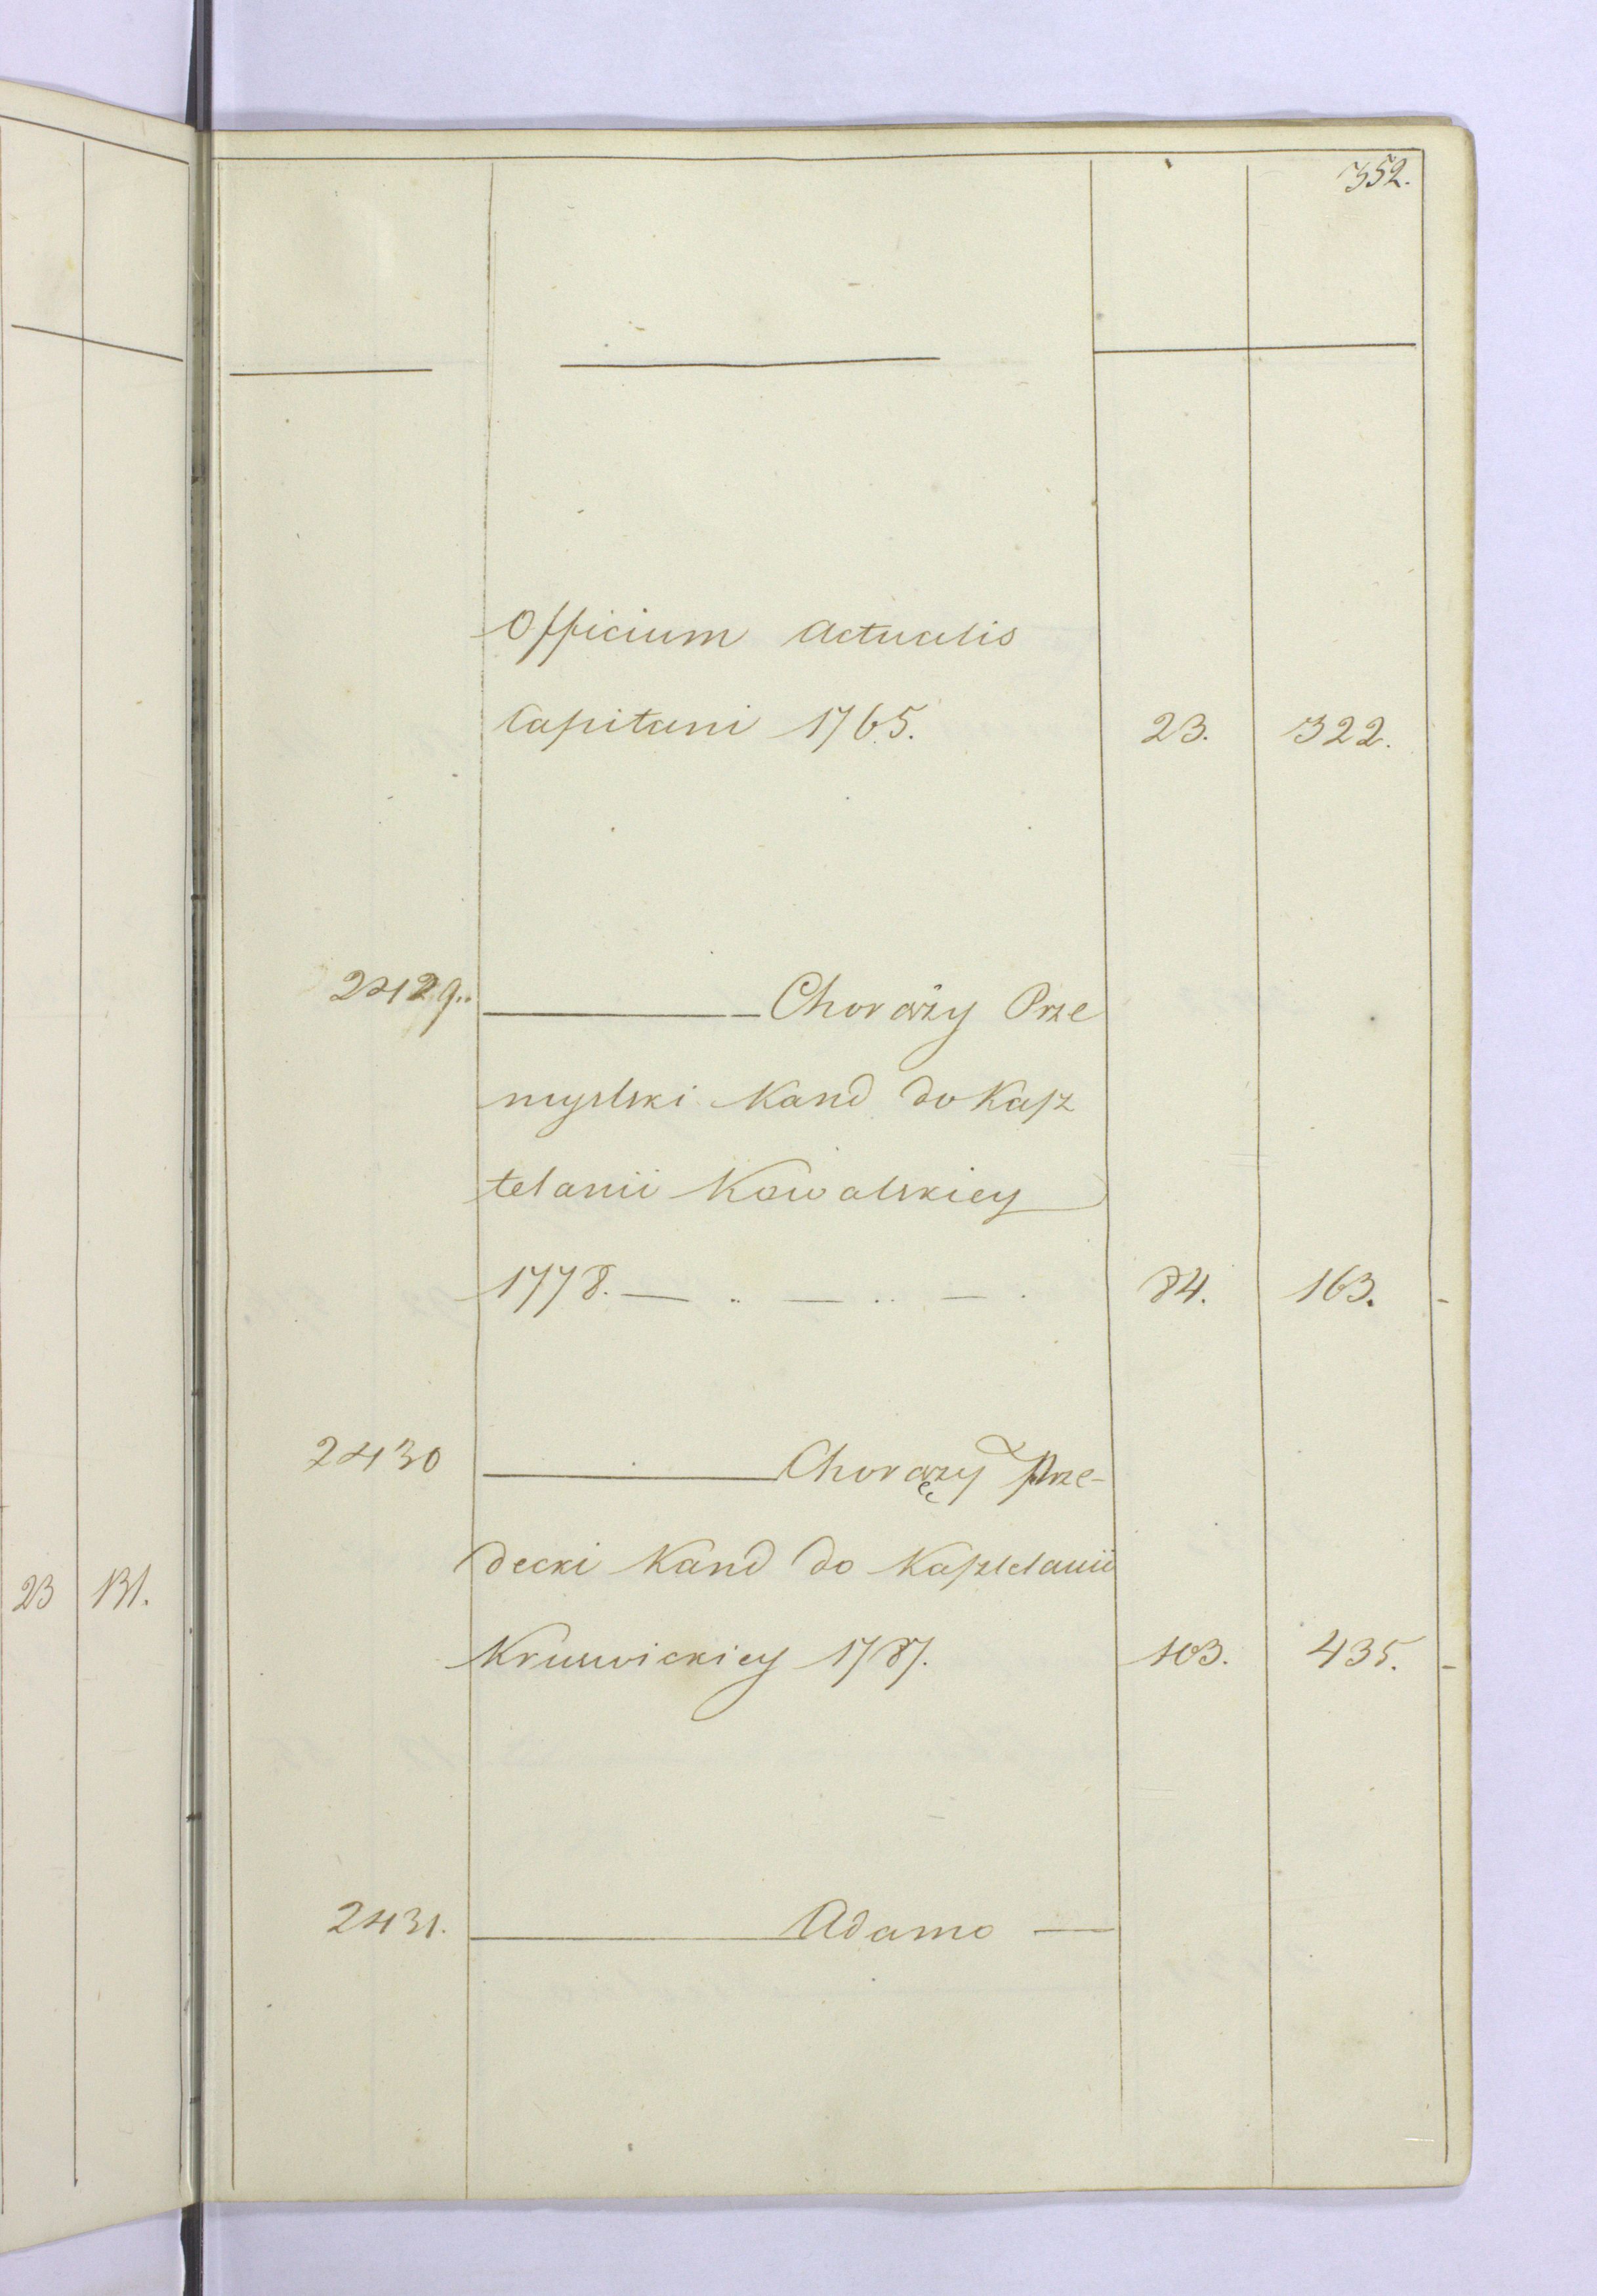 352.
Officium Actualis
Capitani 1765. 23. 322.
2429. Chorąży Prze
myslski Kand do Kasz
telanii Kowalskiey
1778. 84. 163.
2430 Chorązy Prze-
decki Kand do Kasztelanii
Kruswickiey 1787. 103. 435.
23 131.
2431. Adamo